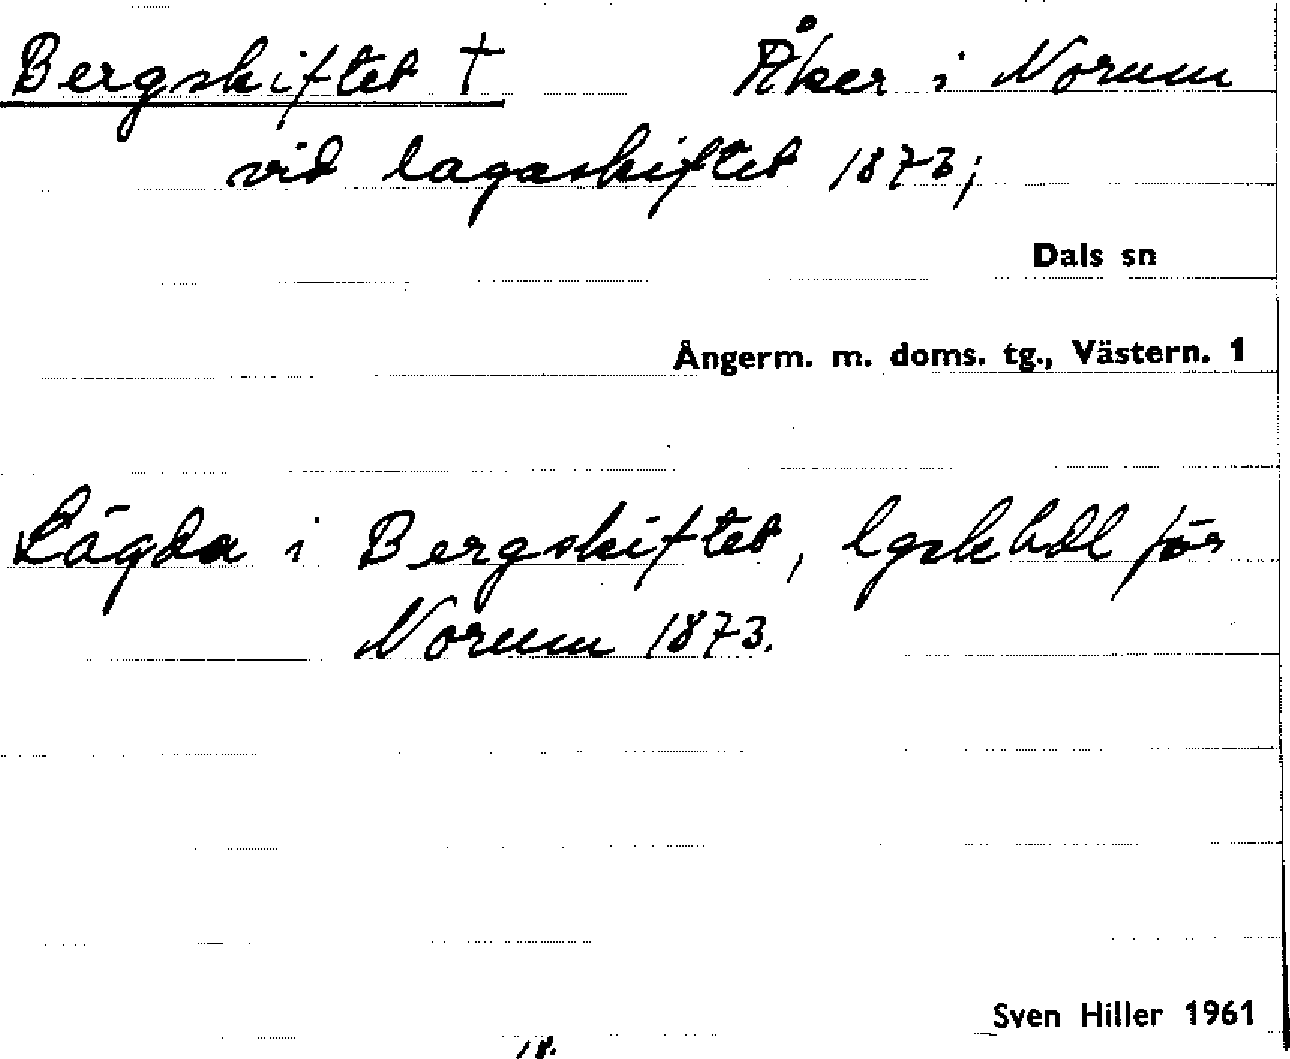 Bergskiftet † Åker i Norum
vid lagaskiftet 1873;
Dals sn
Ångerm. m. doms. tg., Västern. 1
Lägda i Bergskiftet, lgskhdl för
Norum 1873.
Sven Hiller 1961
18.